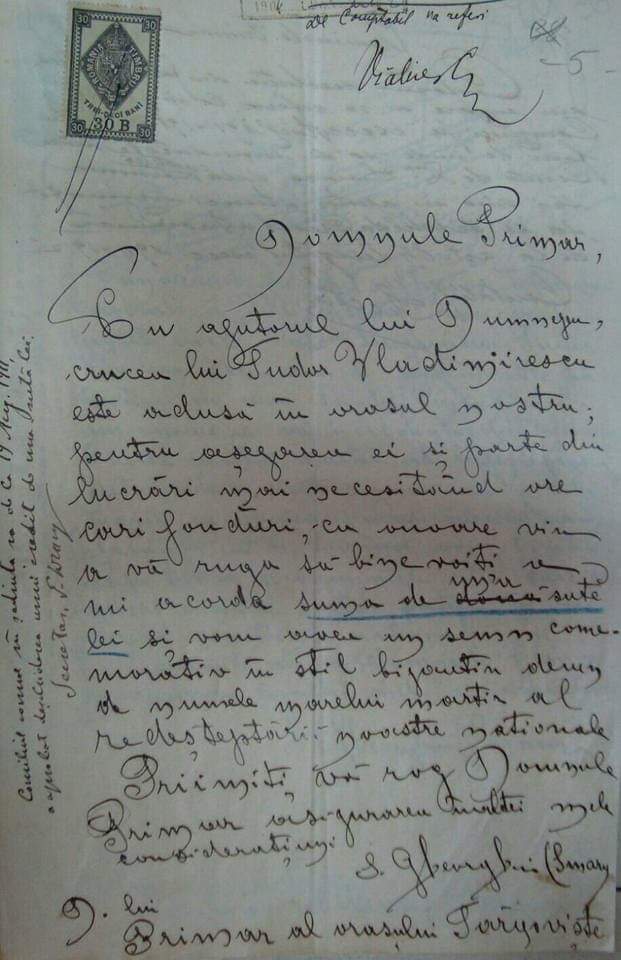 30 30
ROMANIA TIMBRU
TREI-DECI BANI
30 B
30 30
De Comptabil va referi
- 5 -
Domnule Primar,
Cu ajutorul lui Dumnezeu,
crucea lui Tudor Vladimirescu
este adusă în orașul nostru;
pentru așezarea ei și parte din
lucrări mai necesitând ore
cari fonduri, cu onoare vin
a vă ruga să bine voiți a
mi acorda suma de două una sute
lei și vom avea un semn come-
morativ în stil bizantin demn
de numele marelui martir al
redeșteptării noastre naționale
Priimiți, vă rog Domnule
Primar asigurarea înaltei mele
considerațiuni
S. Gheorghiu (Smary
D. lui
Primar al orașului Târgoviște
Consiliul comunal în ședința sa de la 19 Aug. 1911,
a aprobat deschiderea unui credit de una sută lei.
Secretar,